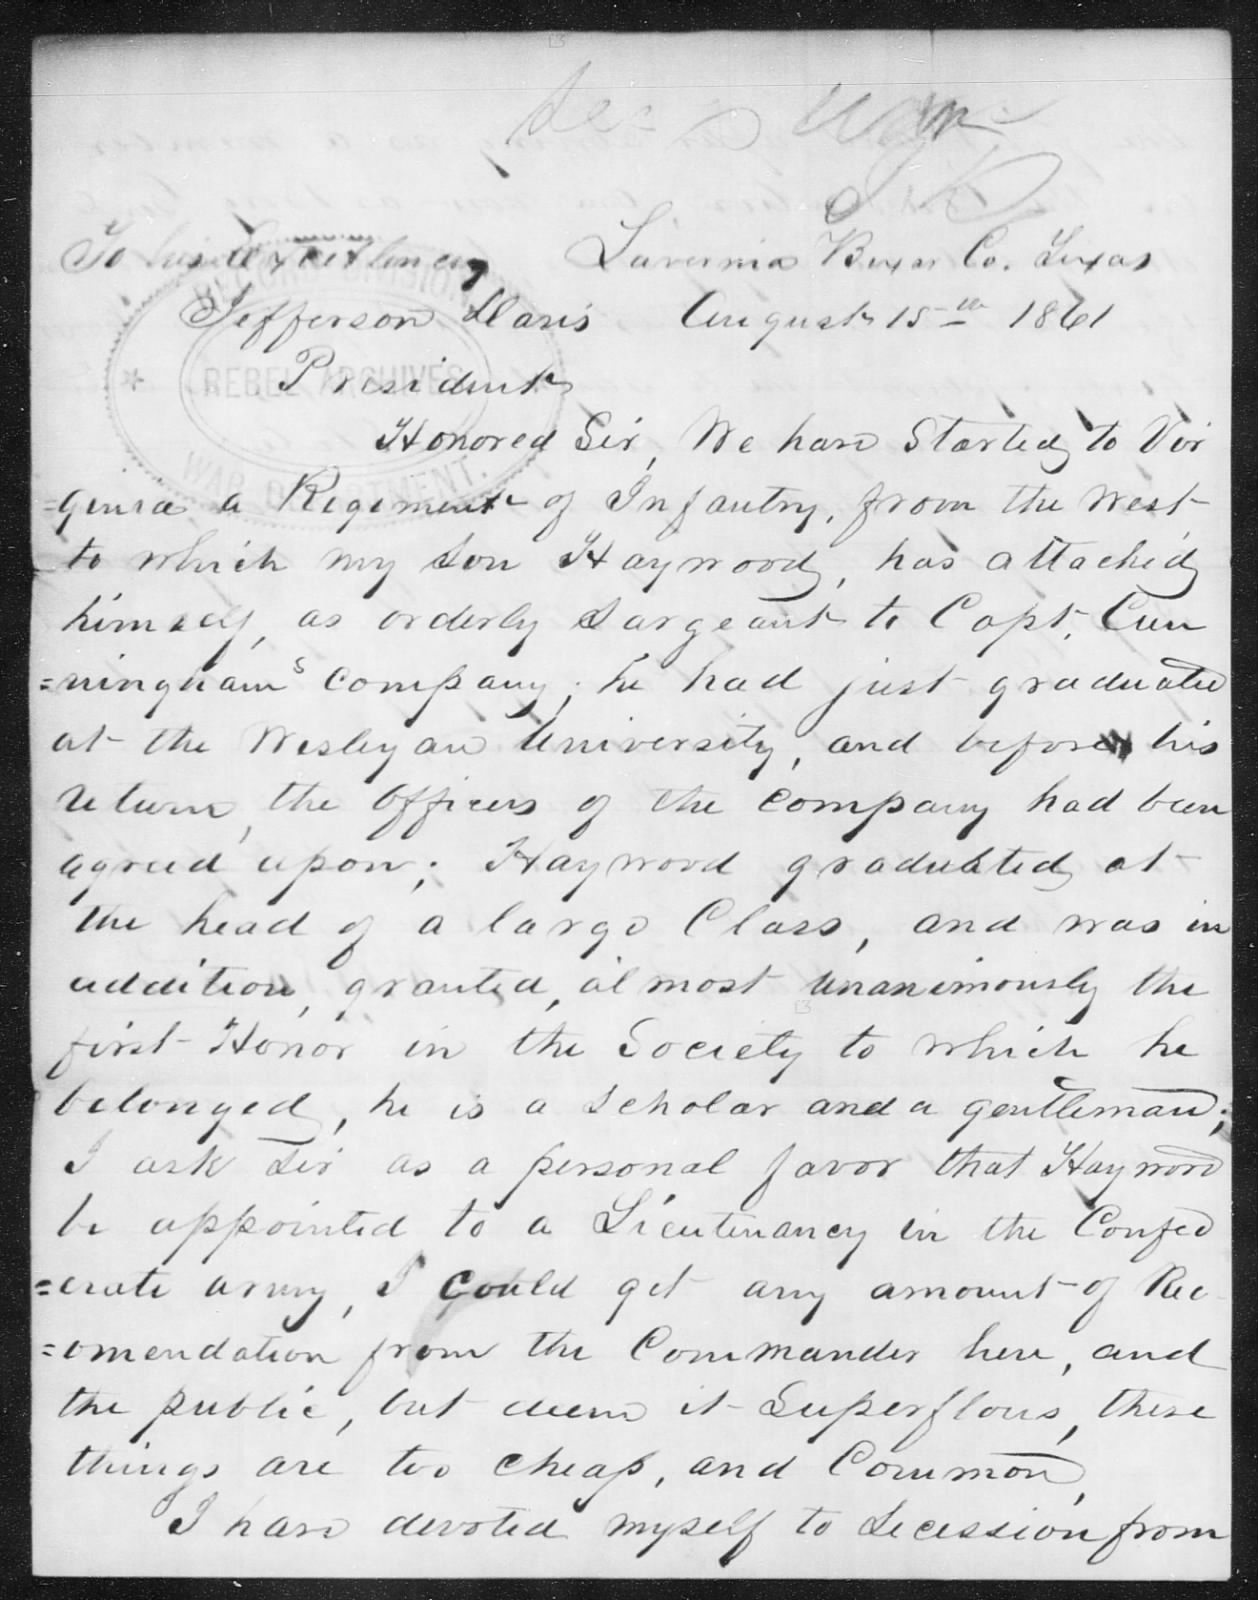 To his Excellency, Lavernia Bexar Co. Texas
Jefferson Davis August 15th 1861
President
RECORD DIVISION
REBEL ARCHIVES
WAR DEPARTMENT.
Honored Sir, We have Started to Vir
=ginia a Regiment of Infantry, from the West
to which my Son Haywood, has attached
himself, as orderly Sargeant to Capt. Cun
=ninghams Company; he had just graduated
at the Wesleyan University, and before his
return, the Officers of the Company had been
agreed upon; Haywood graduated at
the head of a large Class, and was in
addition, granted, almost unanimously the
first Honor in the Society to which he
belonged, he is a Scholar and a gentleman;
I ask Sir as a personal favor that Haywood
be appointed to a Lieutenancy in the Confed
=erate army, I could get any amount of Rec
=omendation from the Commander here, and
the public, but deem it Superflous, these
things are too cheap, and Common,
I have devoted myself to Secession from